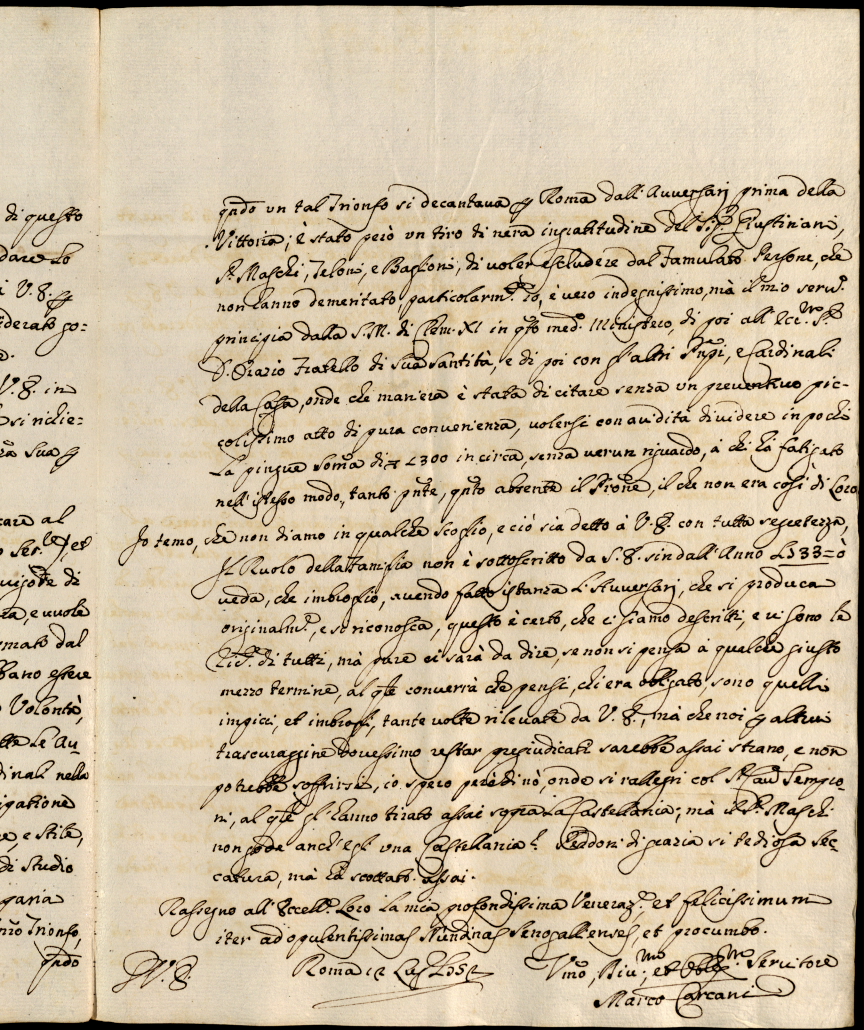 di questo
dare Lo
V. E.
iderato go=
V. E. in
si richie=
Sua
care al
o Ser.
di
ra, e vuole
rmato dal
bano essere
Volontà,
Le Au-
dinali nella
igatione
re, e stile,
di studio
garia
nr̃o Trionfo,
qñdo
qñdo un tal Trionfo si decantava Roma dall'Avversarj prima della
Vittoria; è stato però un tiro di nera ingratitudine del Sig.r Giustiniani,
Maschi, Teloni, e Bastioni, di voler escludere dal Famulato Persone, che
non hanno demeritato particolarm.te Io, è vero indegnissimo, mà il mio serv.o
principia dalla S. M. di Clem. XI in qũto med.o Ministero, di poi all'Ecc.mo S.r
D. Orazio Fratello di Sua Santità, e di poi con gl'altri Pr̃npi, e Cardinali
della Casa, onde che maniera è stata di citare senza un preventivo pic-
colissimo atto di pura convenienza, volersi con avidità dividere in pochi
La pingue som̃a di 1300 in circa, senza verun riguardo, à chi hà fatigato
nell'istesso modo, tanto pñte, qñto absente il Pr̃one, il che non era così di Loro
Io temo, che non diamo in qualche scoglio, e ciò sia detto à V. E. con tutta segretezza,
Il Ruolo della Famiglia non è sottoscritto da S. E. sin dall'Anno 1733= ò
veda, che imbroglio, avendo fatto istanza L'Avversarj, che si produca
originalm.te, e si riconosca, questo è certo, che ci siamo descritti, e vi sono le
di tutti, mà pure ci sarà da dire, se non si pensa à qualche giusto
mezzo termine, al qle converrà che pensi, chi era obligato, sono quelli
impicci, et imbrogli, tante volte rilevate da V. E., mà che noi altrui
trascuraggine dovessimo restar pregiudicati sarebbe assai strano, e non
potrebbe soffrirsi, io spero però di nò, onde si rallegri col S.r Cav. Sempro-
ni, al qle gl'hanno tirato assai sopra La Castellania; mà il S.r Maschi
non gode anch'egli una Castellania? Perdoni di grazia si tediosa sec-
catura, mà hà scottato assai.
Rassegno all'Eccell.e Loro La mia profondissima Veneraz.e, et felicissimum
iter ad opulentissimas Nundinas Senogallenses, et procumbo.
V. E.
Roma 12 Lug.o 1752
Um̃o, Div.mo, et Oblig.mo Servitore
Marco Carcani